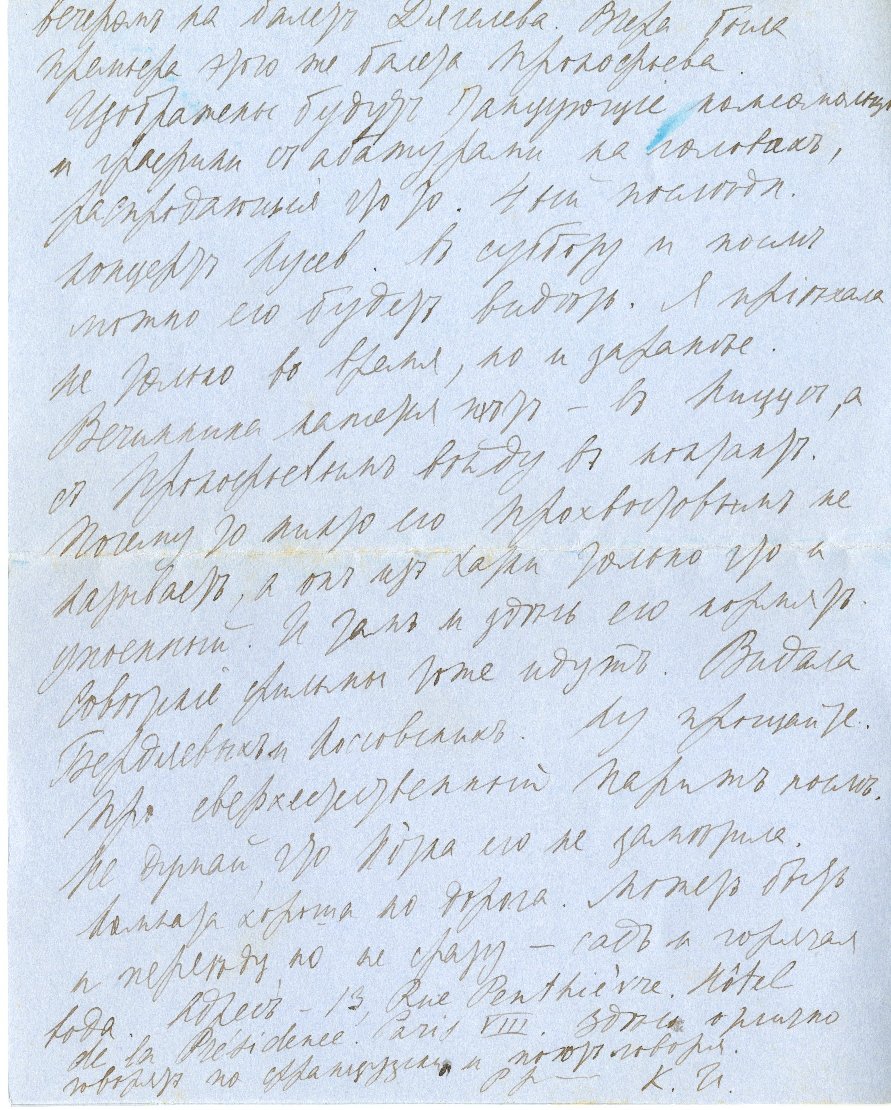 вечеромъ на балетъ Дягелева. Вчера была
премьера этого же балета Прокофьева.
Изображены будутъ танцующіе комсомольцы
и графини съ абатурами на головахъ,
распродающія что то. 4ый послѣдн.
концертъ Кусев. въ субботу и послѣ
можно его будетъ видѣть. Я пріѣхала
не только во время, но и заранѣе.
Вечинкина канетъ — въ Ниццѣ, а
съ Прокофьевымъ войду въ контактъ.
Почему то никто его Прохвостовымъ не
называетъ, а онъ изъ Хари только что и
упоенный. И тамъ и здѣсь его кормятъ.
Совѣтскіе фильмы тоже идутъ. Видала
Бердяевыхъ и Лосовскихъ. Ну прощайте.
Про сверхестественный Парижъ послѣ.
Не думай что Кора его не замѣтила.
Комната хороша но дорога. Можетъ быть
и переѣду но не сразу — садъ и горячая
вода. Адресъ — 13, Rue Penthièvre. Hôtel
de la Présidence. Paris VIII. Здѣсь отлично
говорятъ по французски и поютъ говоря.
К. И.